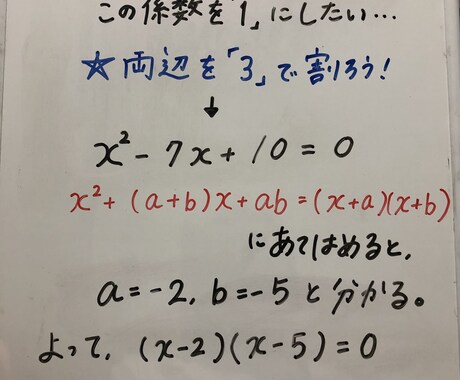 この係数を「1」にしたい…
☆両辺を「3」で割ろう!
↓
x² - 7x + 10 = 0
x² + (a+b)x + ab = (x+a)(x+b)
にあてはめると、
a = -2, b = -5 と分かる。
よって、(x-2)(x-5) = 0